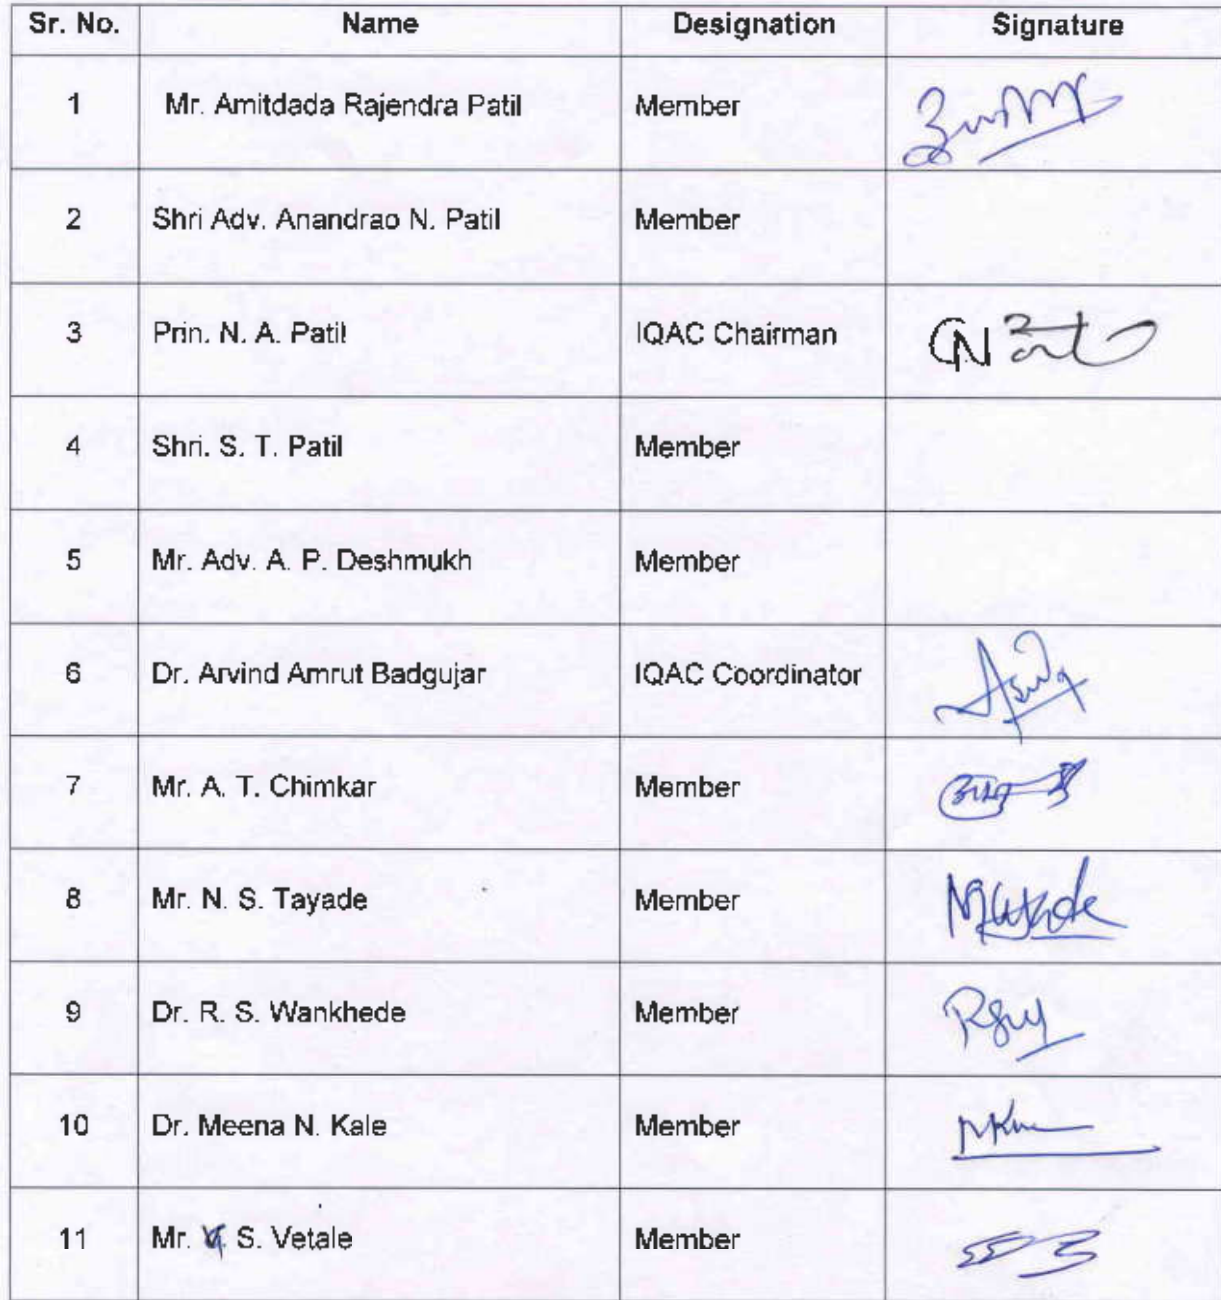 Sr. No. Name Designation Signature
1 Mr. Amitdada Rajendra Patil Member
2 Shri Adv. Anandrao N. Patil Member
3 Prin. N. A. Patil IQAC Chairman
4 Shri. S. T. Patil Member
5 Mr. Adv. A. P. Deshmukh Member
6 Dr. Arvind Amrut Badgujar IQAC Coordinator
7 Mr. A. T. Chimkar Member
8 Mr. N. S. Tayade Member
9 Dr. R. S. Wankhede Member
10 Dr. Meena N. Kale Member
11 Mr. S. Vetale Member